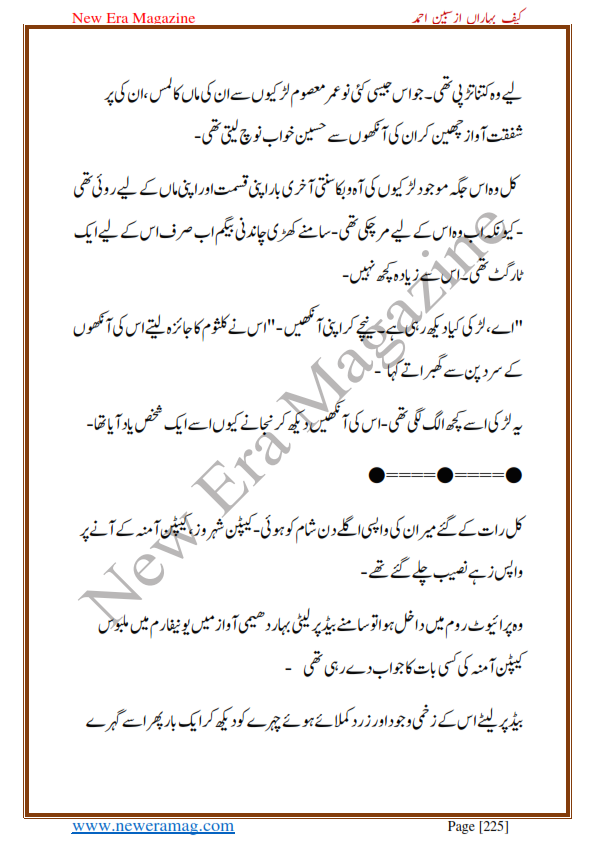 New Era Magazine
کیف بہاراں از سبین احمد
لیے وہ کتنا تڑپی تھی۔ جو اس جیسی کئی نو عمر معصوم لڑکیوں سے ان کی ماں کا لمس، ان کی پر
شفقت آواز چھین کر ان کی آنکھوں سے حسین خواب نوچ لیتی تھی-
کل وہ اس جگہ موجود لڑکیوں کی آہ و بکا سنتی آخری بار اپنی قسمت اور اپنی ماں کے لیے روئی تھی
-کیونکہ اب وہ اس کے لیے مر چکی تھی- سامنے کھڑی چاندنی بیگم اب صرف اس کے لیے ایک
ٹارگٹ تھی۔ اس سے زیادہ کچھ نہیں-
"اے، لڑکی کیا دیکھ رہی ہے۔ نیچے کر اپنی آنکھیں-" اس نے کلثوم کا جائزہ لیتے اس کی آنکھوں
کے سرد پن سے گھبراتے کہا -
یہ لڑکی اسے کچھ الگ لگی تھی- اس کی آنکھیں دیکھ کر نجانے کیوں اسے ایک شخص یاد آیا تھا-
●====●====●
کل رات کے گئے میران کی واپسی اگلے دن شام کو ہوئی- کیپٹن شہروز، کیپٹن آمنہ کے آنے پر
واپس زہے نصیب چلے گئے تھے-
وہ پرائیوٹ روم میں داخل ہوا تو سامنے بیڈ پر لیٹی بہار دھیمی آواز میں یونیفارم میں ملبوس
کیپٹن آمنہ کی کسی بات کا جواب دے رہی تھی -
بیڈ پر لیٹے اس کے زخمی وجود اور زرد کملائے ہوئے چہرے کو دیکھ کر ایک بار پھر اسے گہرے
New Era Magazine
www.neweramag.com
Page [225]